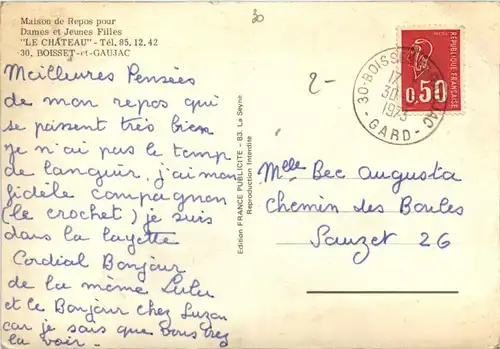 Maison de Repos pour
Dames et Jeunes Filles
"LE CHÂTEAU" - Tél. 85.12.42
30. BOISSET-et-GAUJAC
Meilleures Pensées
de mon repos qui
se passent très bien
je n'ai pas le temp
de languir, j'ai mon
fidèle compagnon
(le crochet) je suis
dans la layette
Cordial Bonjour
de la même Lulu
et le Bonjour chez Luzan
car je sais que vous
la voir.
Edition FRANCE PUBLICITE - 83. La Seyne
Reproduction Interdite
30
2-
30-BOISSET GAUJAC
17
30-
1973
-GARD-
RÉPUBLIQUE FRANÇAISE
0,50
Melle Bec Augusta
Chemin des Boules
Sauzet 26